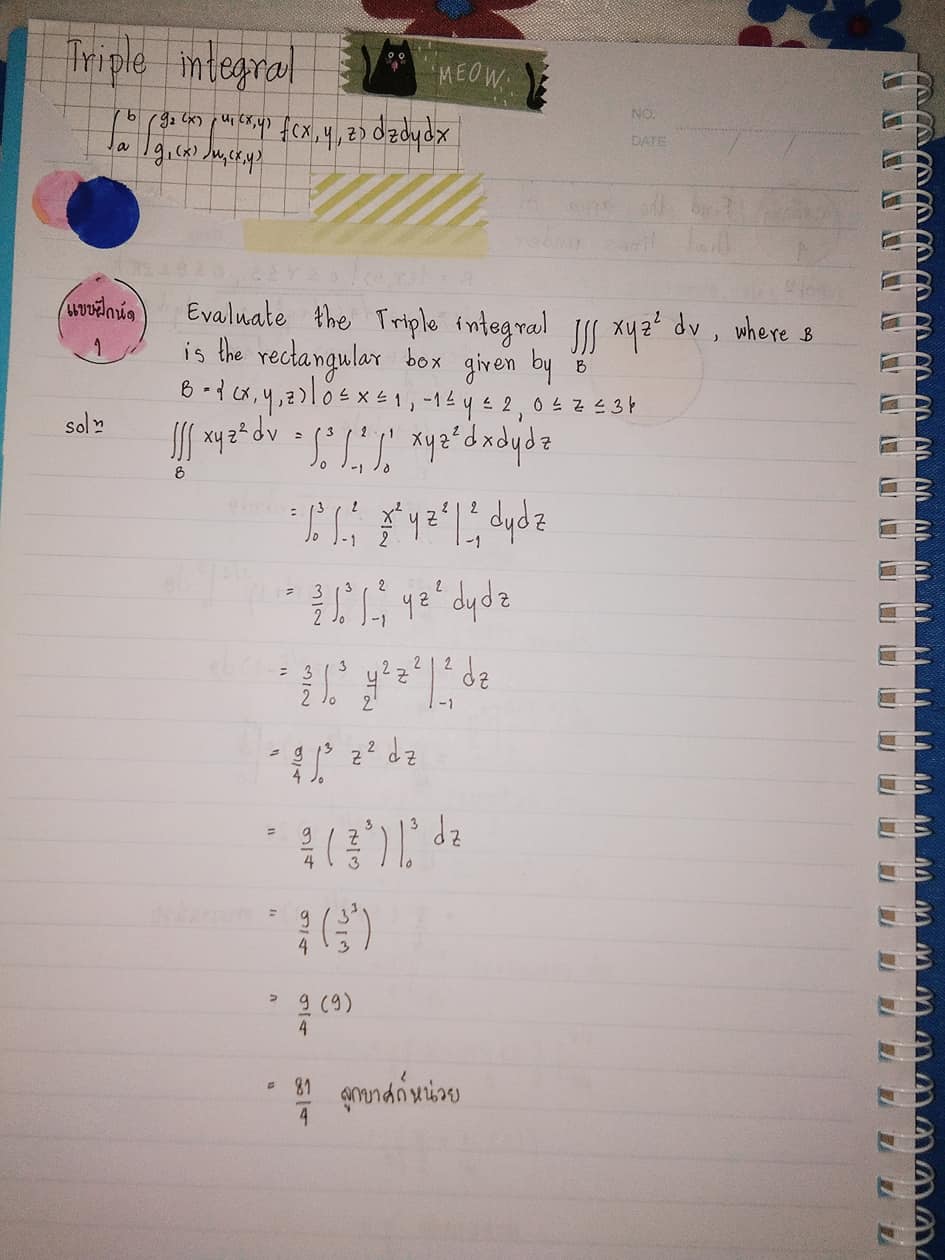 Triple integral
MEOW
∫ₐᵇ ∫_{g₁(x)}^{g₂(x)} ∫_{u₁(x,y)}^{u₁(x,y)} f(x, y, z) dzdydx
NO.
DATE / /
แบบฝึกหัด
1
Evaluate the Triple integral ∭_B xyz² dv, where B
is the rectangular box given by
B = {(x, y, z) | 0 ≤ x ≤ 1, -1 ≤ y ≤ 2, 0 ≤ z ≤ 3}
solⁿ
∭_B xyz² dv = ∫₀³ ∫₋₁² ∫₀¹ xyz² dxdydz
= ∫₀³ ∫₋₁² x²/2 yz² |₋₁² dydz
= 3/2 ∫₀³ ∫₋₁² yz² dydz
= 3/2 ∫₀³ y²/2 z² |₋₁² dz
= 9/4 ∫₀³ z² dz
= 9/4 (z³/3) |₀³ dz
= 9/4 (3³/3)
= 9/4 (9)
= 81/4 ลูกบาศก์หน่วย